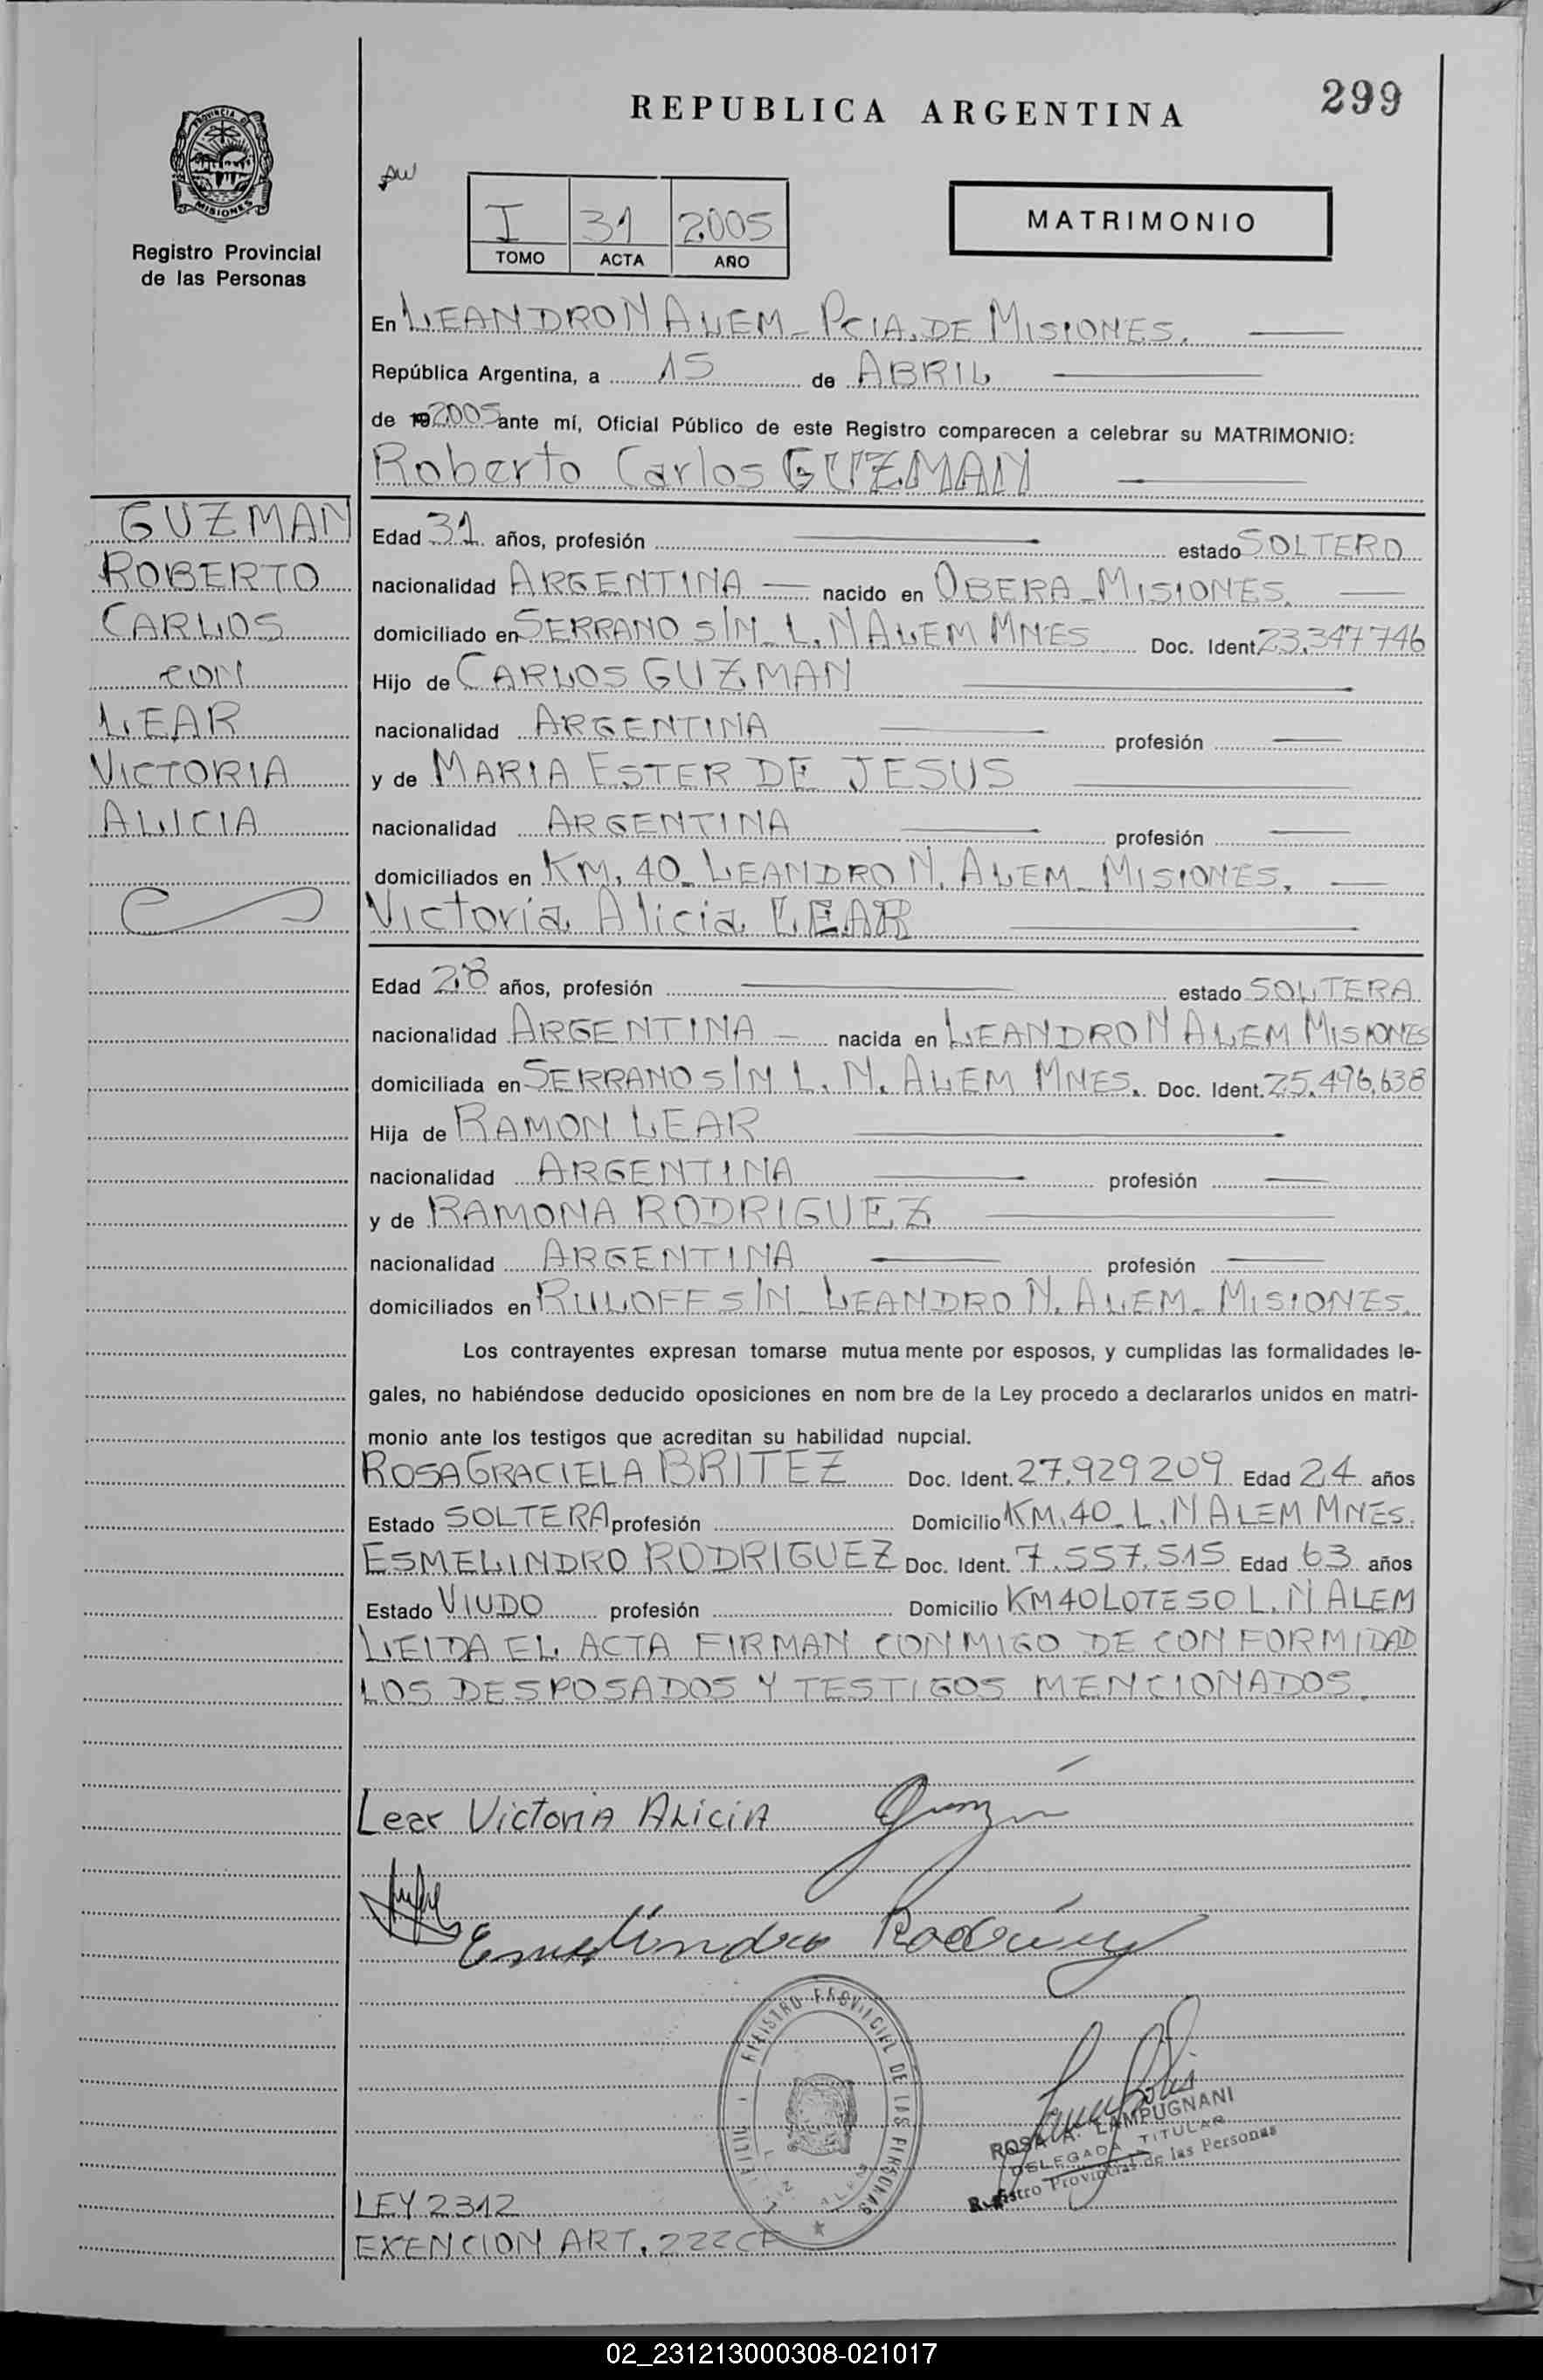 299
REPUBLICA ARGENTINA
PROVINCIA DE
MISIONES
Registro Provincial
de las Personas
I 31 2005
TOMO ACTA AÑO
MATRIMONIO
En LEANDRO N ALEM - PCIA. DE MISIONES.
República Argentina, a 15 de ABRIL
de 19 2005 ante mí, Oficial Público de este Registro comparecen a celebrar su MATRIMONIO:
Roberto Carlos GUZMAN
GUZMAN
ROBERTO
CARLOS
CON
LEAR
VICTORIA
ALICIA
Edad 31 años, profesión estado SOLTERO
nacionalidad ARGENTINA nacido en OBERA - MISIONES.
domiciliado en SERRANO S/N - L. N ALEM MNES Doc. Ident. 23.347746
Hijo de CARLOS GUZMAN
nacionalidad ARGENTINA profesión
y de MARIA ESTER DE JESUS
nacionalidad ARGENTINA profesión
domiciliados en KM. 40 - LEANDRO N. ALEM - MISIONES.
Victoria Alicia LEAR
Edad 28 años, profesión estado SOLTERA
nacionalidad ARGENTINA nacida en LEANDRO N ALEM MISIONES
domiciliada en SERRANO S/N L. N. ALEM MNES. Doc. Ident. 25.496.638
Hija de RAMON LEAR
nacionalidad ARGENTINA profesión
y de RAMONA RODRIGUEZ
nacionalidad ARGENTINA profesión
domiciliados en RULOFF S/N - LEANDRO N. ALEM - MISIONES.
Los contrayentes expresan tomarse mutua mente por esposos, y cumplidas las formalidades le-
gales, no habiéndose deducido oposiciones en nom bre de la Ley procedo a declararlos unidos en matri-
monio ante los testigos que acreditan su habilidad nupcial.
ROSA GRACIELA BRITEZ Doc. Ident. 27.929209 Edad 24 años
Estado SOLTERA profesión Domicilio KM. 40 - L. N ALEM MNES.
ESMELINDRO RODRIGUEZ Doc. Ident. 7.557.515 Edad 63 años
Estado VIUDO profesión Domicilio KM 40 LOTE 50 L. N ALEM
LEIDA EL ACTA FIRMAN CONMIGO DE CONFORMIDAD
LOS DESPOSADOS Y TESTIGOS MENCIONADOS.
Lear Victoria Alicia
Esmelindro Rodriguez
REGISTRO PROVINCIAL DE LAS PERSONAS
ROSA A. LAMPUGNANI
DELEGADA TITULAR
Registro Provincial de las Personas
LEY 2312
EXENCION ART. 222 CF
02_231213000308-021017